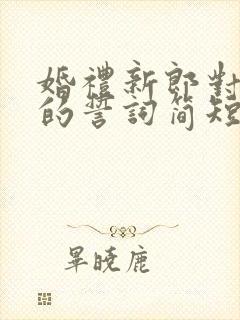 婚禮新郎對
的誓詞簡短
畢曉鹿